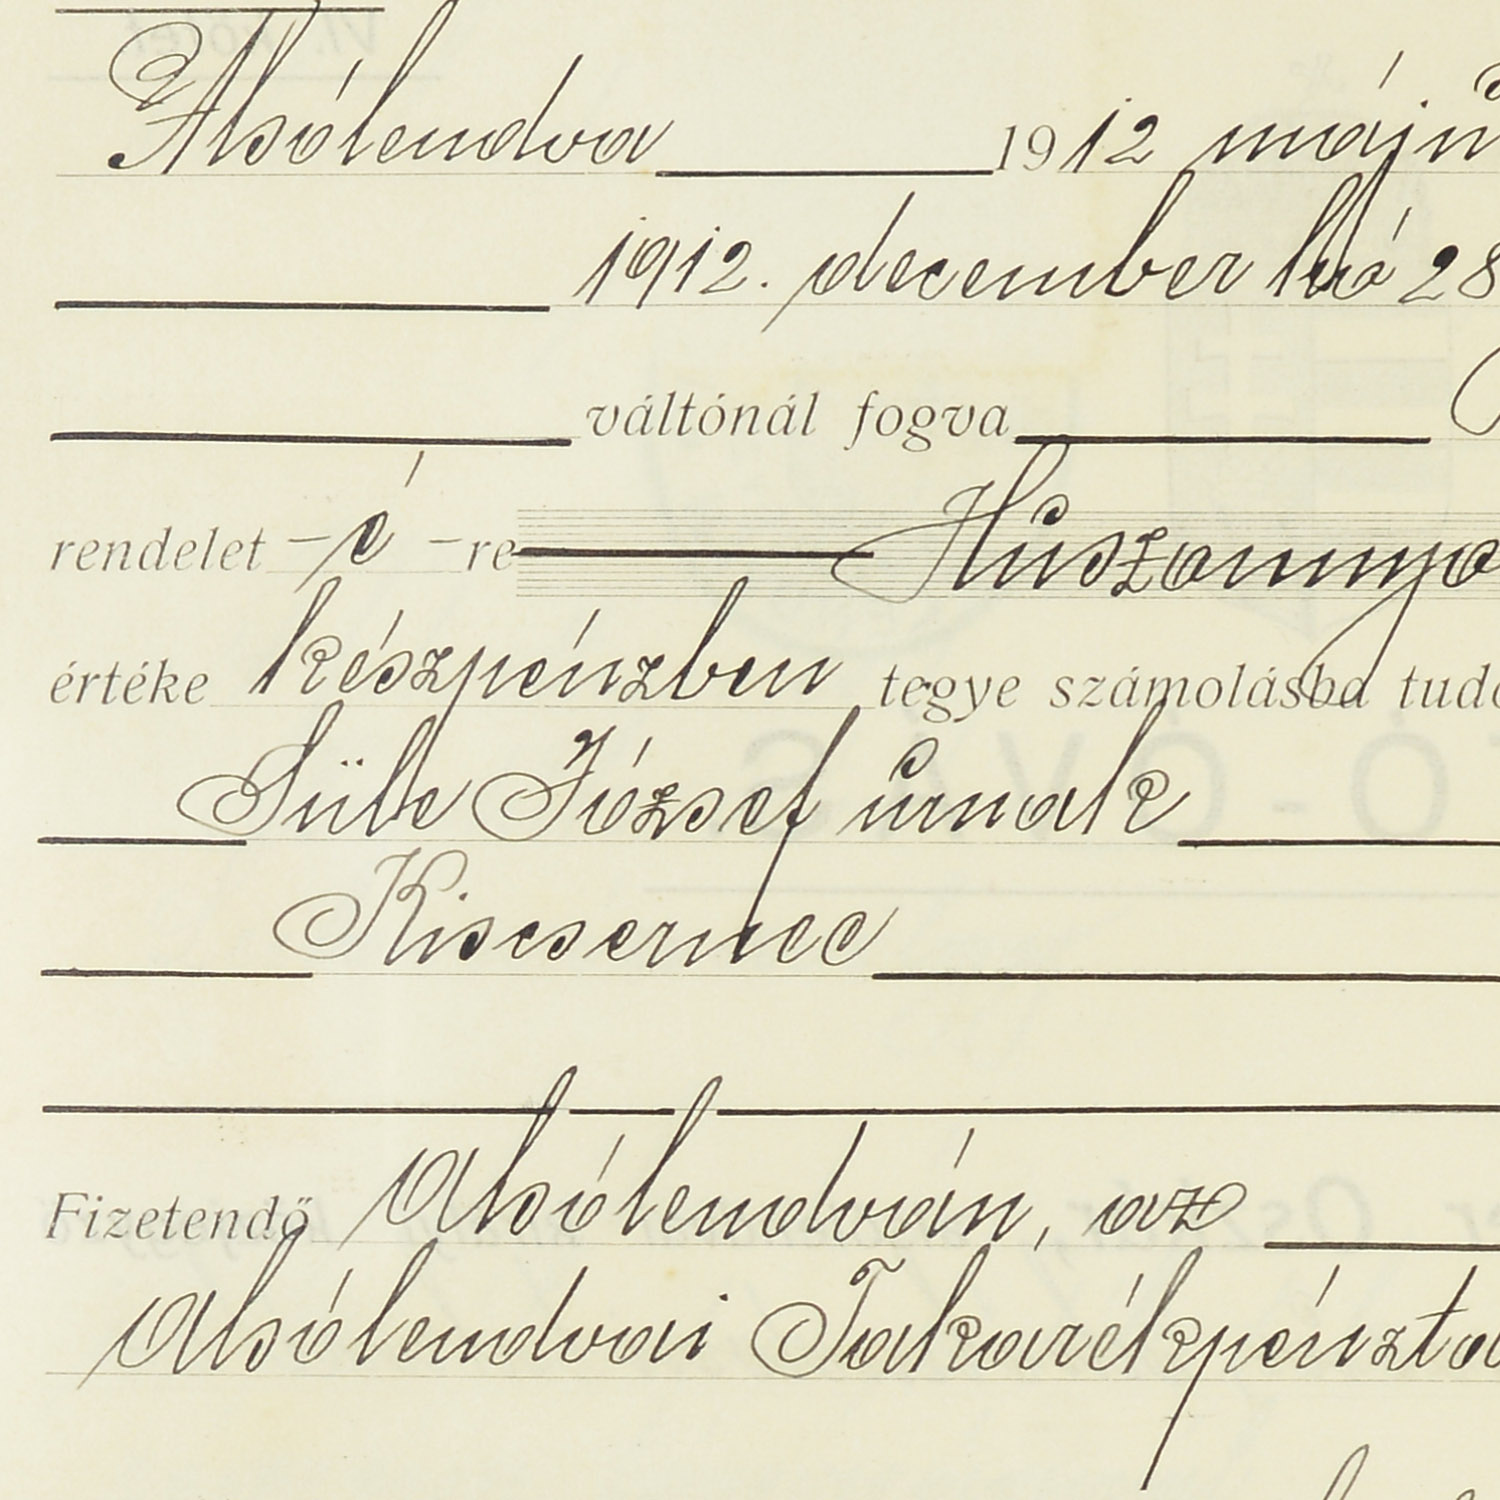 Alsólendva 1912 máju
1912. december hó 28
váltónál fogva
rendelet - é - re Huszonnyo
értéke készpénzben tegye számolásba tudó
Süle József úrnak
Kiscsernec
Fizetendő Alsólendván, az
Alsólendvai Takarékpénztá